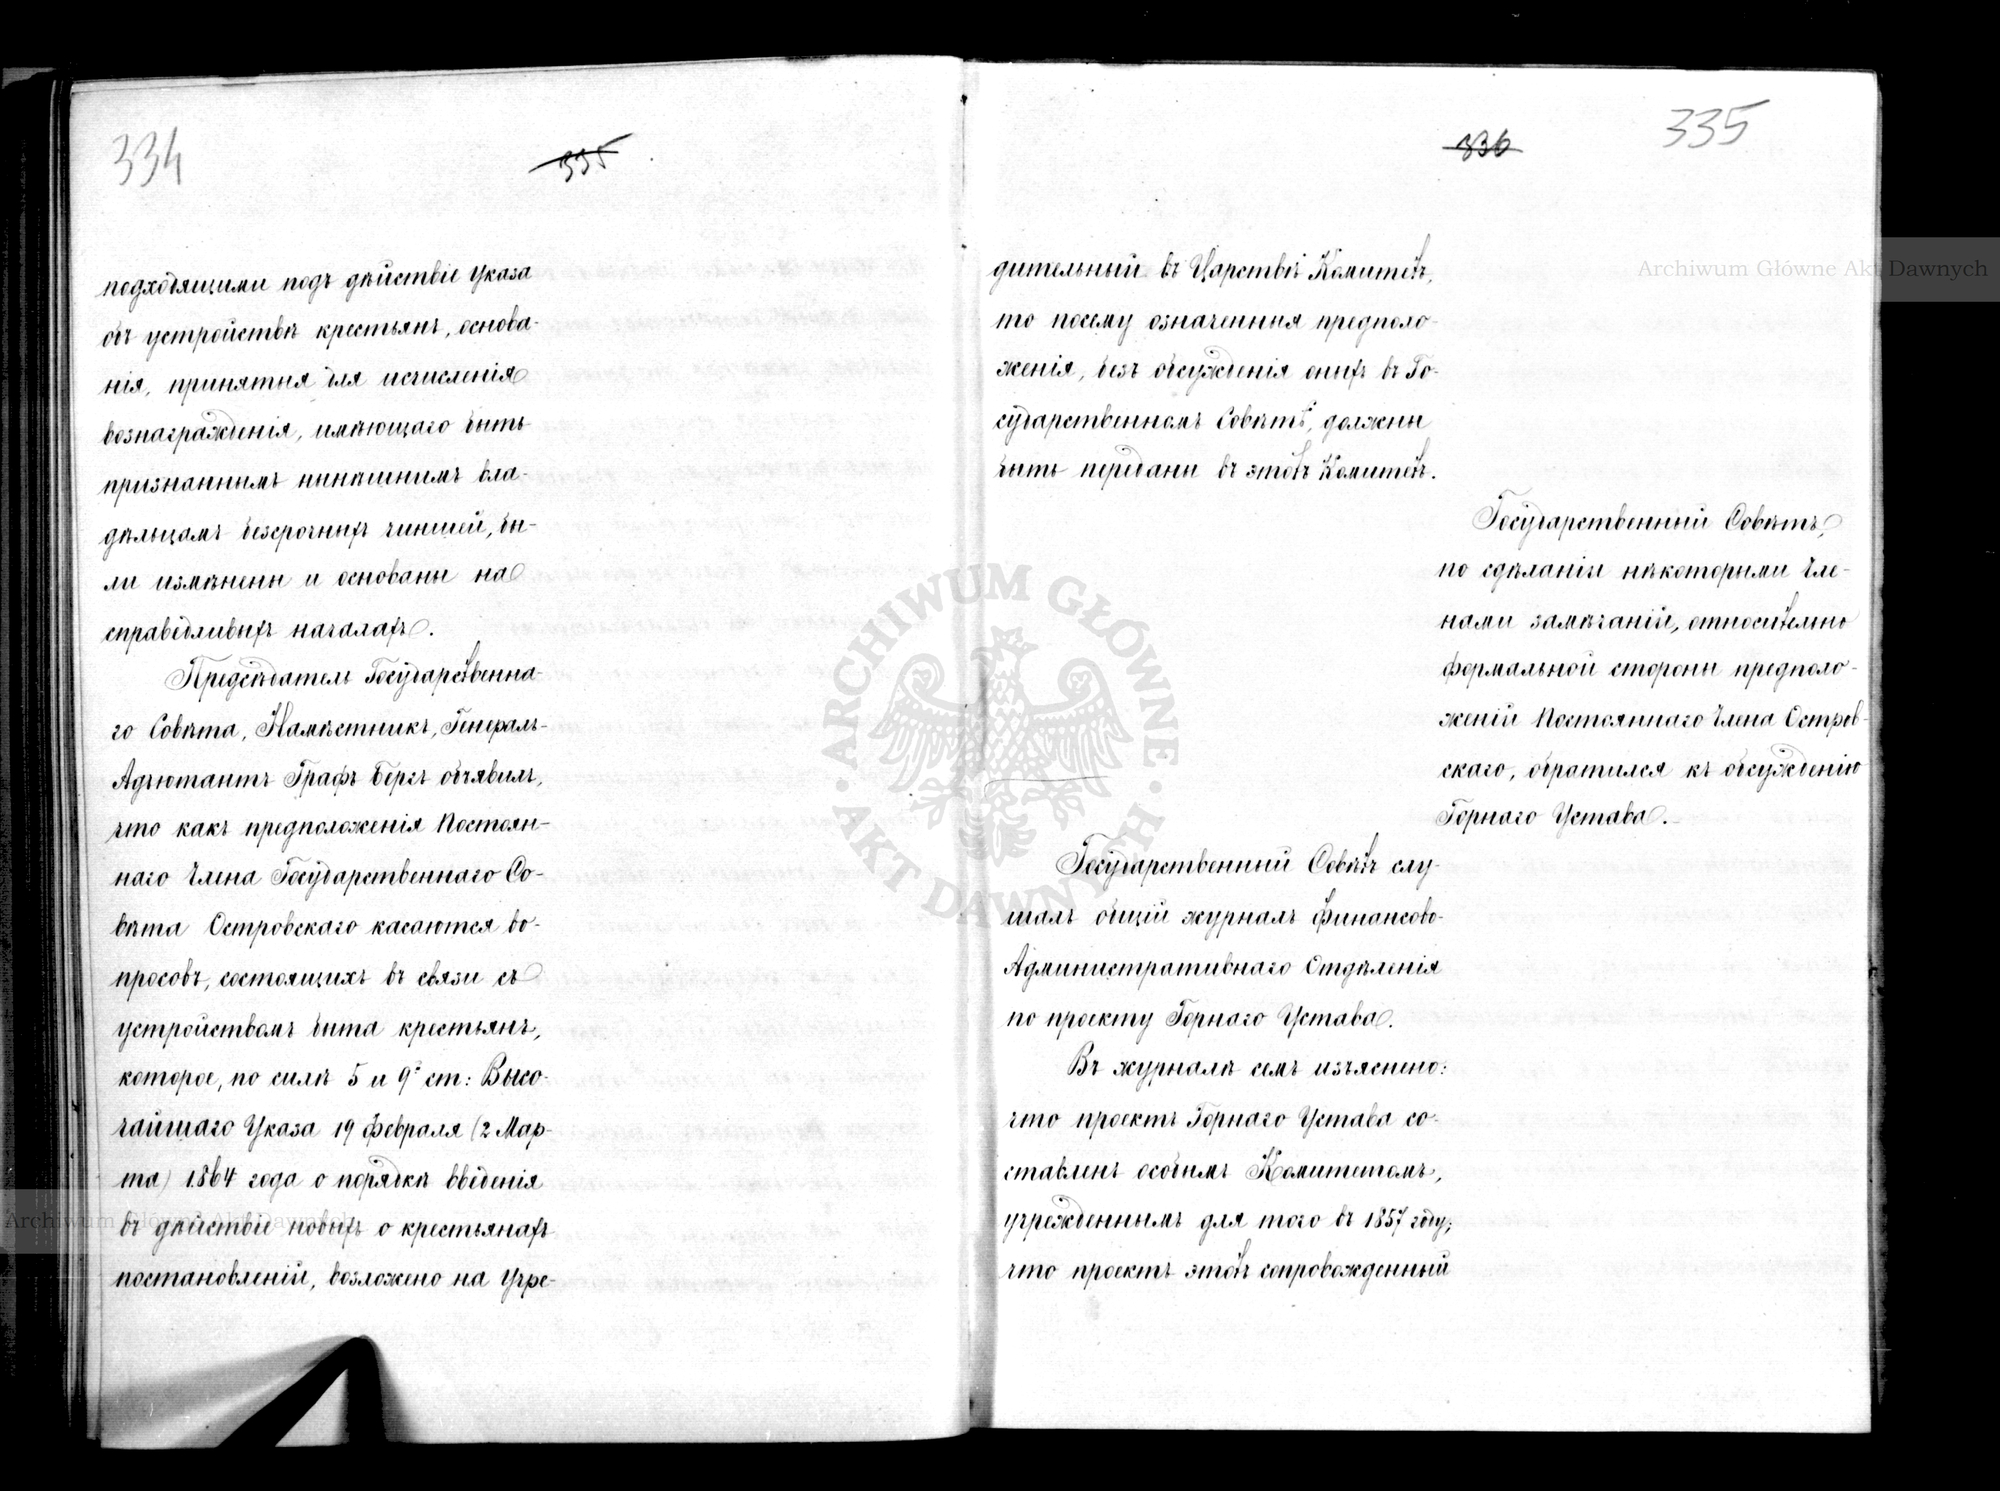 334
335
подходящими подъ дѣйствіе Указа
объ устройствѣ крестьянъ, основа-
нія, принятыя для исчисленія
вознагражденія, имѣющаго быть
признаннымъ нынѣшнимъ вла-
дѣльцамъ безсрочныхъ чиншей, бы-
ли измѣнены и основаны на
справедливыхъ началахъ.
Предсѣдатель Государственна-
го Совѣта, Намѣстникъ, Генералъ-
Адъютантъ Графъ Бергъ объявилъ,
что какъ предположенія Постоян-
наго Члена Государственнаго Со-
вѣта Островскаго касаются во-
просовъ, состоящихъ въ связи съ
устройствомъ быта крестьянъ,
которое, по силѣ 5 и 9 ст: Высо-
чайшаго Указа 19 Февраля (2 Мар-
та) 1864 года о порядкѣ введенія
въ дѣйствіе новыхъ о крестьянахъ
постановленій, возложено на Учре-
336
335
дительный въ Царствѣ Комитетъ,
то посему означенныя предполо-
женія, безъ обсужденія оныхъ въ Го-
сударственномъ Совѣтѣ, должны
быть переданы въ этотъ Комитетъ.
Государственный Совѣтъ,
по сдѣланіи нѣкоторыми Чле-
нами замѣчаній, относительно
формальной стороны предполо-
женій Постояннаго Члена Остров-
скаго, обратился къ обсужденію
Горнаго Устава.
Государственный Совѣтъ слу-
шалъ общій журналъ Финансово-
Административнаго Отдѣленія
по проекту Горнаго Устава.
Въ журналѣ семъ изъяснено:
что проектъ Горнаго Устава со-
ставленъ особымъ Комитетомъ,
учрежденнымъ для того въ 1857 году;
что проектъ этотъ сопровожденный
Archiwum Główne Akt Dawnych
Archiwum Główne Akt Dawnych
ARCHIWUM GŁÓWNE · AKT DAWNYCH ·